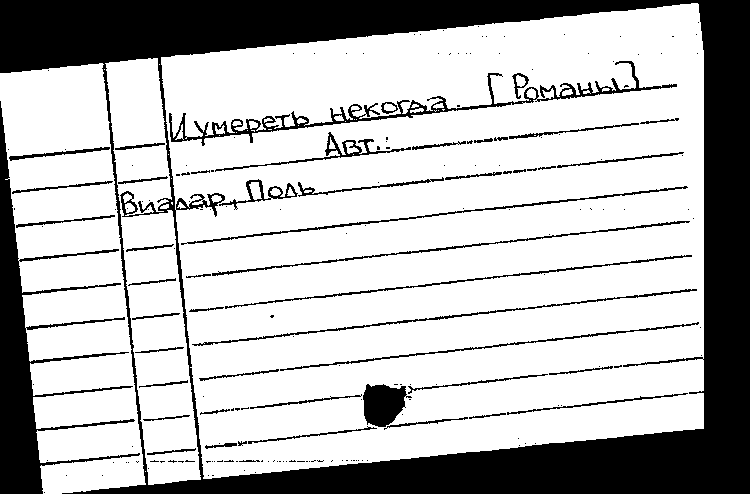 И умереть некогда. [Романы.]
Авт.:
Виалар, Поль